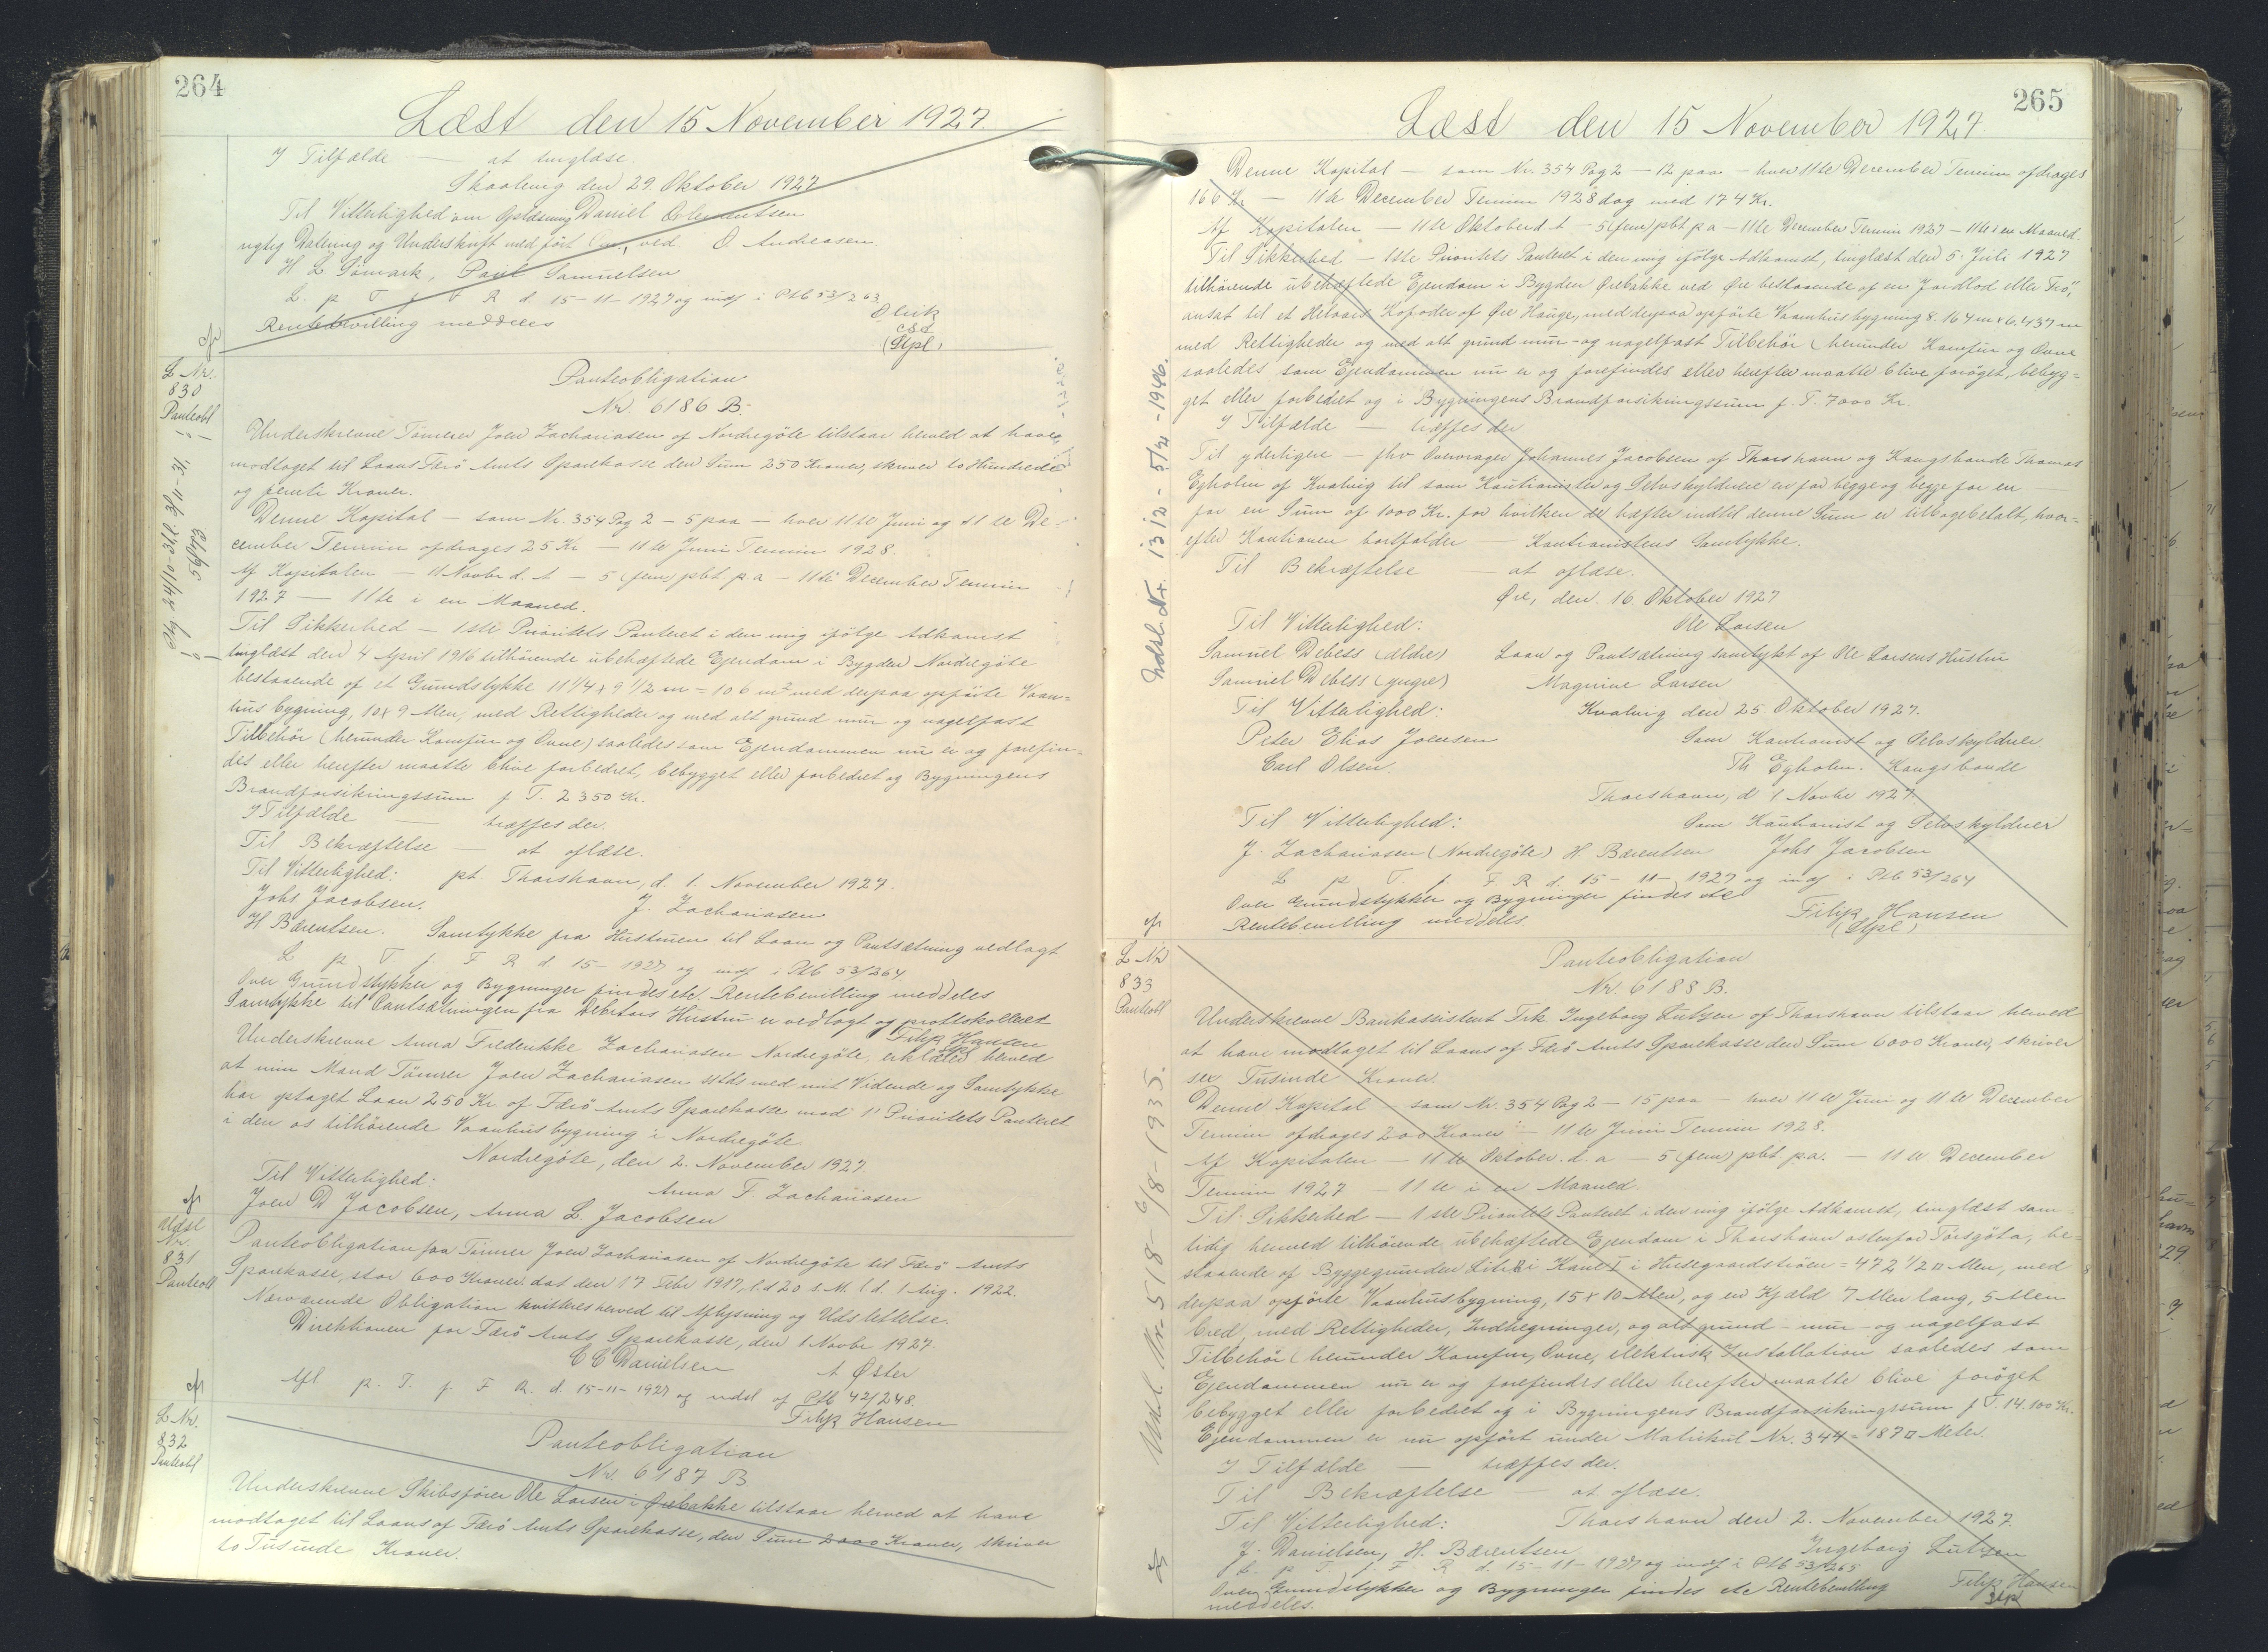 264
Læst den 15 November 1927.
I Tilfælde — at tinglæse.
Skaalevig den 29. Oktober 1927
Til Vitterlighed om Oplæsning Daniel
rigtig Datering og Underskrift med ført ved O. Andreasen.
H L Sömark, Poul Samuelsen
L. p T f F R d. 15-11-1927 og indf i Ptb 53/263
Rentebevilling meddeles
(Stpl)
cfr
L Nr.
830
Panteobl
Panteobligation
Nr. 6186 B.
Underskrevne Tömrer Joen Zachariasen af Nordregöte tilstaar herved at have
modtaget til Laans Færö Amts Sparekasse den Sum 250 Kroner, skriver to Hundrede
og femti Kroner.
Denne Kapital — som Nr. 354 Pag 2 — 5 paa — hver 11te Juni og 11te De-
cember Termin afdrages 25 Kr — 11te Juni Termin 1928.
Af Kapitalen — 11 Novbr d. A — 5 (fem) pbt. p.a — 11te December Termin
1927 — 11te i en Maaned.
Til Sikkerhed — 1ste Prioritets Panteret i den mig ifölge Adkomst
tinglæst den 4 April 1916 tilhörende übehæftede Ejendom i Bygden Nordregöte
bestaaende af et Grundstykke 11 1/4 x 9 1/2 m = 106 m² med derpaa opförte Vaan-
hüs bygning, 10 x 9 Alen, med Rettigheder og med alt grund mur og nagelfast
Tilbehör (herunder Komfur og Ovne) saaledes som Ejendommen nu er og forefin-
des eller herefter maatte blive forbedret, bebygget eller forbedret og Bygningens
Brandforsikringssum f T. 2350 Kr.
I Tilfælde — træffes der.
Til Bekræftelse — at aflæse.
Til Vitterlighed: pt. Thorshavn, d. 1. November 1927.
Johs Jacobsen. J. Zachariasen
H Bærentsen. Samtykke fra Hustruen til Laan og Pantsætning vedlagt
L p T. f. F R d. 15- 1927 og indf i Ptb 53/264.
Over Grundstykker og Bygninger findes etc. Rentebevilling meddeles
Samtykke til Pantsætningen fra Debitors Hustru er vedlagt og protokolleret
Filip Hansen
Underskrevne Anna Frederikke Zachariasen Nordregöte, erklærer herved
at min Mand Tömrer Joen Zachariasen sstds med mit Vidende og Samtykke
har optaget Laan 250 Kr. af Færö Amts Sparekasse mod 1' Prioritets Panteret
i den os tilhörende Vaanhus bygning i Nordregöte.
Nordregöte, den 2. November 1927.
Til Vitterlighed: Anna F. Zachariasen
Joen D Jacobsen, Anna L. Jacobsen
cfr
Udsl
Nr.
831
Panteobl
Panteobligation fra Tömrer Joen Zachariasen af Nordregöte til Færö Amts
Sparekasse, stor 600 Kroner dat den 17 Febr 1917, l.d 20 s.M. l d. 1 Aug. 1922.
Nærværende Obligation kvitteres herved til Aflysning og Udslettelse.
Direktionen for Færö Amts Sparekasse, den 1 Novbr 1927.
C C Danielsen A Øster
Afl. p. T. f. F R. d. 15-11-1927 og udsl af Ptb 42/248.
Filip Hansen
cfr
L Nr.
832
Panteobl
Panteobligation
Nr. 6187 B
Underskrevne Skibsförer Ole Larsen i Ørebakke tilstaar herved at have
modtaget til Laans af Færö Amts Sparekasse, den Sum 2000 Kroner, skriver
to Tusinde Kroner.
265
Læst den 15 November 1927.
Denne Kapital — som Nr. 354 Pag 2 — 12 paa — hver 11te December Termin afdrages
166 Kr — 11te December Termin 1928 dog med 174 Kr.
Af Kapitalen — 11te Oktober d. A — 5 (fem) pbt p a — 11te December Termin 1927 — 11te i en Maaned.
Til Sikkerhed — 1ste Prioritets Panteret i den mig ifölge Adkomst, tinglæst den 5. Juli 1927
tilhörende übehæftede Ejendom i Bygden Ørebakke ved Øre bestaaende af en Jordlod eller Trö,
ansat til et Halvaars Kofoder af Øre Hauge, med derpaa opförte Vaanhusbygning 8.164 m x 6.437 m
med Rettigheder og med alt grund mur- og nagelfast Tilbehör (herunder Komfur og Ovne
saaledes som Ejendommen nu er og forefindes eller herefter maatte blive foröget, bebyg-
get eller forbedret og i Bygningens Brandforsikringssum f. T. 7000 Kr.
I Tilfælde — træffes der
Til yderligere — fhv Overvrager Johannes Jacobsen af Thorshavn og Kongsbonde Thomas
Egholm af Kvalvig til som Kautionister og Selvskyldnere en for begge og begge for en —
for en Sum af 1000 Kr. for hvilken de hæfter indtil denne Sum er tilbagebetalt, hvor-
efter Kautionen bortfalder — Kautionistens Samtykke.
Til Bekræftelse — at aflæse.
Øre, den 16 Oktober 1927
Til Vitterlighed: Ole Larsen
Samuel Debess (ældre) Laan og Pantsætning samtykt af Ole Larsens Hustru
Samuel Debess (yngre) Magrine Larsen
Til Vitterlighed: Kvalvig den 25 Oktober 1927.
Peter Elias Joensen Som Kautionist og Selvskyldner.
Carl Olsen. Th Egholm. Kongsbonde
Thorshavn, d 1 Novbr 1927.
Til Vitterlighed: Som Kautionist og Selvskyldner
J. Zachariasen (Nordregöte) H Bærentsen Johs Jacobsen
L p T. f. F R d. 15-11-1927 og indf i Ptb 53/264
Over Grundstykker og Bygninger findes etc
Rentebevilling meddeles. Filip Hansen
(Stpl)
Udsl. Nr. 1312 - 5/12-1946.
cfr
L Nr
833
Panteobl
Panteobligation
Nr. 6188 B.
Underskrevne Bankassistent Frk. Ingeborg Lützen af Thorshavn tilstaar herved
at have modtaget til Laans af Færö Amts Sparekasse den Sum 6000 Kroner, skriver
sex Tusinde Kroner.
Denne Kapital — som Nr. 354 Pag 2 — 15 paa — hver 11te Juni og 11te December
Termin afdrages 200 Kroner — 11te Juni Termin 1928.
Af Kapitalen — 11te Oktober d. a — 5 (fem) pbt. p.a. — 11te December
Termin 1927 — 11te i en Maaned.
Til Sikkerhed — 1ste Prioritets Panteret i den mig ifölge Adkomst, tinglæst sam-
tidig hermed tilhörende übehæftede Ejendom i Thorshavn ostenfor Torsgöta, be-
staaende af Byggegrunden Litr. 8 i Kane I i Husegaardströen = 472 1/2 □ Alen, med
derpaa opförte Vaanhusbygning, 15 x 10 Alen, og en Kjald 7 Alen lang, 5 Alen
bred, med Rettigheder, Indhegninger, og alt grund- mur- og nagelfast
Tilbehör (herunder Komfur, Ovne, elektrisk Installation saaledes som
Ejendommen nu er og forefindes eller herefter maatte blive foröget
bebygget eller forbedret og i Bygningens Brandforsikringssum f T. 14.100 Kr.
Ejendommen er nu opfört under Matrikul Nr. 344 = 187 □ Meter.
I Tilfælde — træffes der.
Til Bekræftelse — at aflæse.
Til Vitterlighed: Thorshavn den 2. November 1927.
J. Danielsen, H. Bærentsen Ingeborg Lützen
L. p T f. F R d. 15-11-1927 og indf i Ptb 53/265
Over Grundstykker og Bygninger findes etc Rentebevilling Filip Hansen
meddeles. Stpl
Udsl. Nr. 518 - 6/8-1935.